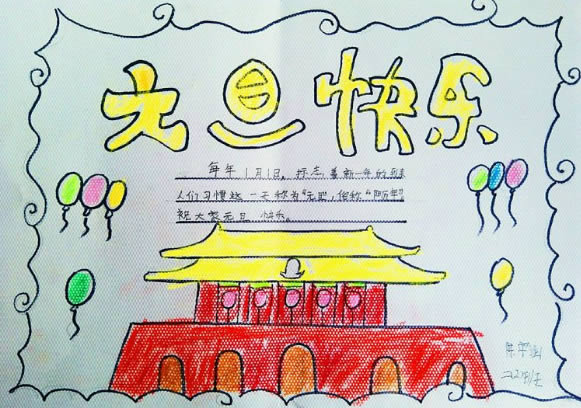 元旦快乐
每年1月1日，标志着新一年的
人们习惯这一天称为“元旦”，俗称“阳历年”
祝大家元旦 快乐。